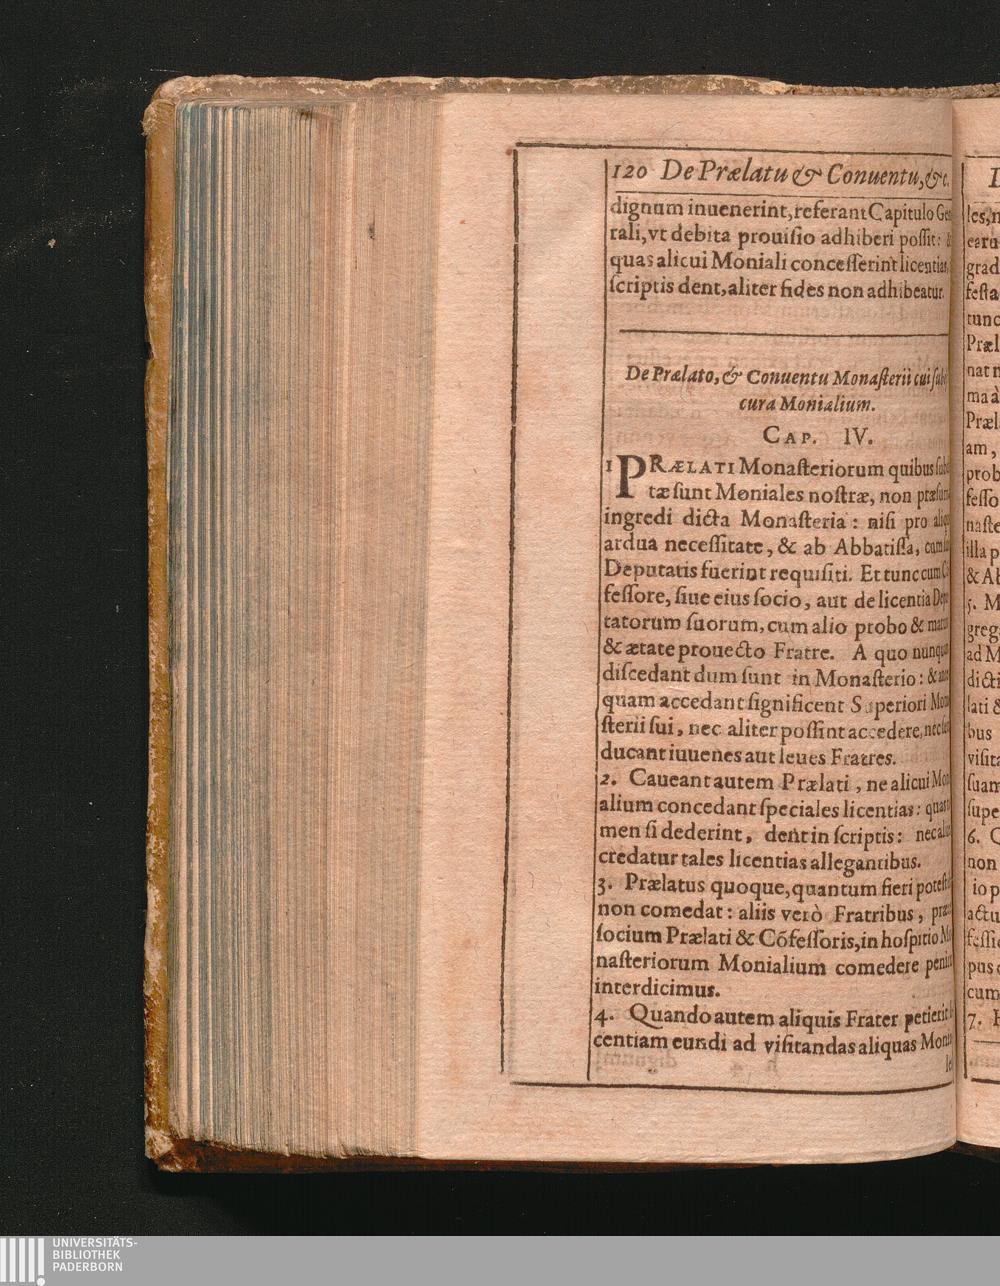 120 De Prælatu & Conuentu, &c.
dignum inuenerint, referant Capitulo Ge
rali, vt debita prouiſio adhiberi poſſit: &
quas alicui Moniali conceſſerint licentias,
ſcriptis dent, aliter fides non adhibeatur.
De Prælato, & Conuentu Monaſterii cui ſub
cura Monialium.
CAP. IV.
1 PRÆLATI Monaſteriorum quibus ſub
tæ ſunt Moniales noſtræ, non præſum
ingredi dicta Monaſteria: niſi pro aliqu
ardua neceſſitate, & ab Abbatiſſa, cum
Deputatis fuerint requiſiti. Et tunc cum C
feſſore, ſiue eius ſocio, aut de licentia Dep
tatorum ſuorum, cum alio probo & matu
& ætate prouecto Fratre. A quo nunqua
diſcedant dum ſunt in Monaſterio: &
quam accedant ſignificent Superiori Mon
ſterii ſui, nec aliter poſſint accedere, nec
ducant iuuenes aut leues Fratres.
2. Caueant autem Prælati, ne alicui Mon
alium concedant ſpeciales licentias: quas
men ſi dederint, dent in ſcriptis: nec ali
credatur tales licentias allegantibus.
3. Prælatus quoque, quantum fieri poteſt
non comedat: aliis verò Fratribus, præ
ſocium Prælati & Cõfeſſoris, in hoſpitio M
naſteriorum Monialium comedere peni
interdicimus.
4. Quando autem aliquis Frater petierit
centiam eundi ad viſitandas aliquas Moni
le
les, n
earu
grad
feſta
tunc
Præl
nat n
ma à
Præl
am,
prob
feſſo
naſte
illa p
& Ab
5. M
greg
ad M
dicti
lati &
bus
viſita
ſuam
ſupe
6. Q
non
io p
actu
feſſi
pus
cum
7. H
UNIVERSITÄTS-
BIBLIOTHEK
PADERBORN